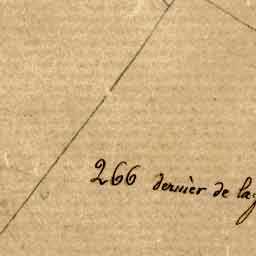 266 dernier de la